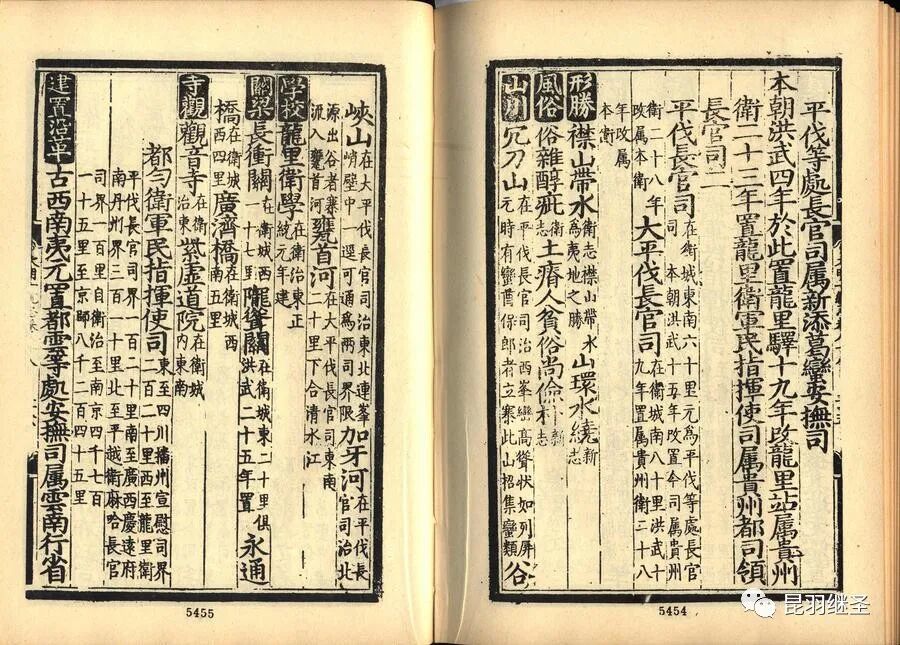 平伐等處長官司属新添葛蠻安撫司
本朝洪武四年於此置龍里驛十九年改龍里站属貴州
衛二十三年置龍里衛軍民指揮使司属貴州都司領
長官司二
平伐長官司 在衛城東南六十里元為平伐等處長官司本朝洪武十五年改置今司属貴州
衛二十八年改属本衛 大平伐長官司 在衛城南八十里洪武十九年置属貴州衛二十八
年改属本衛
形勝 襟山帶水 衛志襟山帶水為夷地之勝 山環水繞 新志
風俗 俗雜醇疵 衛志 土瘠人貧俗尚儉朴 新志
山川 冗刀山 在平伐長官司治西峯巒高聳状如列屏元時有蠻酋保郎者立寨此山招集蠻類 谷
5454
峽山 在大平伐長官司治東北連峯峭壁中一逕可通為兩司界限 加牙河 在平伐長官司治北
源出谷者寨流入甕首河 甕首河 在大平伐長官司東南二十里下合清水江
學校 龍里衛學 在衛治東正統元年建
關梁 長衝關 在衛城西一十七里 隴聳關 在衛城東二十里俱洪武二十五年置 永通
橋 在衛城西四里 廣濟橋 在衛城西南五里
寺觀 觀音寺 在衛治東 紫虚道院 在衛城内東南
都勻衛軍民指揮使司 東至四川播州宣慰司界二百二十里西至龍里衛
平伐長官司界一百二十里南至廣西慶遠府南丹州界三百一十里北至平越衛麻哈長官
司界一百里自衛治至南京四千七百一十五里至京師八千二百四十五里
建置沿革 古西南夷元置都雲等處安撫司属雲南行省
5455
昆羽继圣